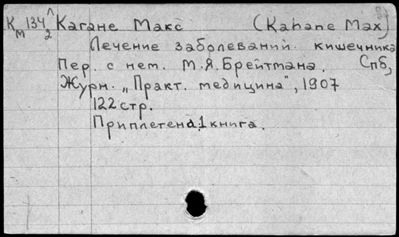 К 134 Л Кагане Макс (Kahane Max)
м 2
Лечение заболеваний кишечника
Пер. с нем. М.Я.Брейтмана. Спб,
Журн. „Практ. медицина", 1907
122 стр.
Приплетена 1 книга.